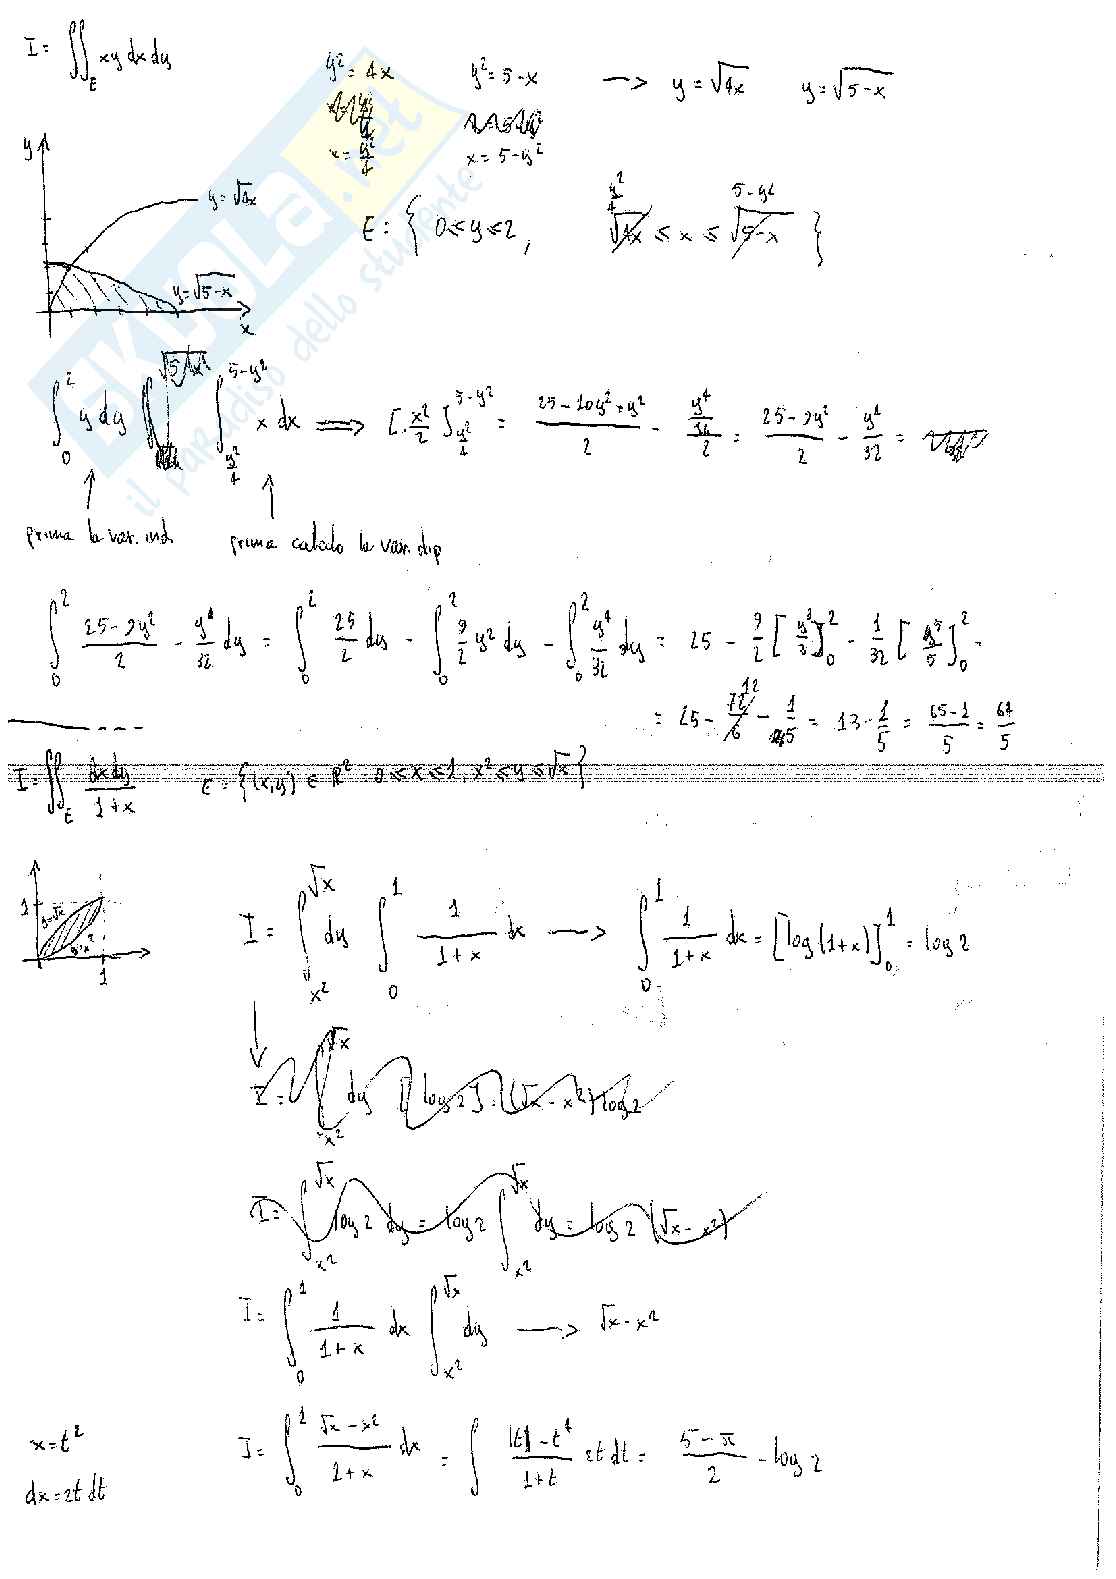 I = ∬_E xy dx dy
y² = 4x    y² = 5-x    → y = √4x    y = √5-x
x = y²/4    x = 5-y²
E = { 0 ≤ y ≤ 2, y²/4 ≤ x ≤ 5-y² }
y
y = √4x
y = √5-x
x
∫_0^2 y dy ∫_{y²/4}^{5-y²} x dx ⟹ [x²/2]_{y²/4}^{5-y²} = (25-10y²+y²)/2 - (y⁴/16)/2 = (25-9y²)/2 - y⁴/32 =
prima la var. ind.    prima calcolo la var. dip
∫_0^2 (25-9y²)/2 - y⁴/32 dy = ∫_0^2 25/2 dy - ∫_0^2 9/2 y² dy - ∫_0^2 y⁴/32 dy = 25 - 9/2 [y³/3]_0^2 - 1/32 [y⁵/5]_0^2 =
= 25 - 72/6 12 - 1/5 = 13 - 1/5 = (65-1)/5 = 64/5
I = ∬_E dx dy/(1+x)    E = {(x,y) ∈ R² : 0 ≤ x ≤ 1, x² ≤ y ≤ √x}
1
y=√x
y=x²
1
I = ∫_{x²}^{√x} dy ∫_0^1 1/(1+x) dx → ∫_0^1 1/(1+x) dx = [log(1+x)]_0^1 = log 2
I = ∫_{x²}^{√x} dy [log 2] = (√x - x²) log 2
I = ∫_{x²}^{√x} log 2 dy = log 2 ∫_{x²}^{√x} dy = log 2 (√x - x²)
I = ∫_0^1 1/(1+x) dx ∫_{x²}^{√x} dy → √x - x²
x = t²    I = ∫_0^1 (√x - x²)/(1+x) dx = ∫ (|t| - t⁴)/(1+t) 2t dt = (5-π)/2 - log 2
dx = 2t dt
SKUOLA.net
il paradiso dello studente